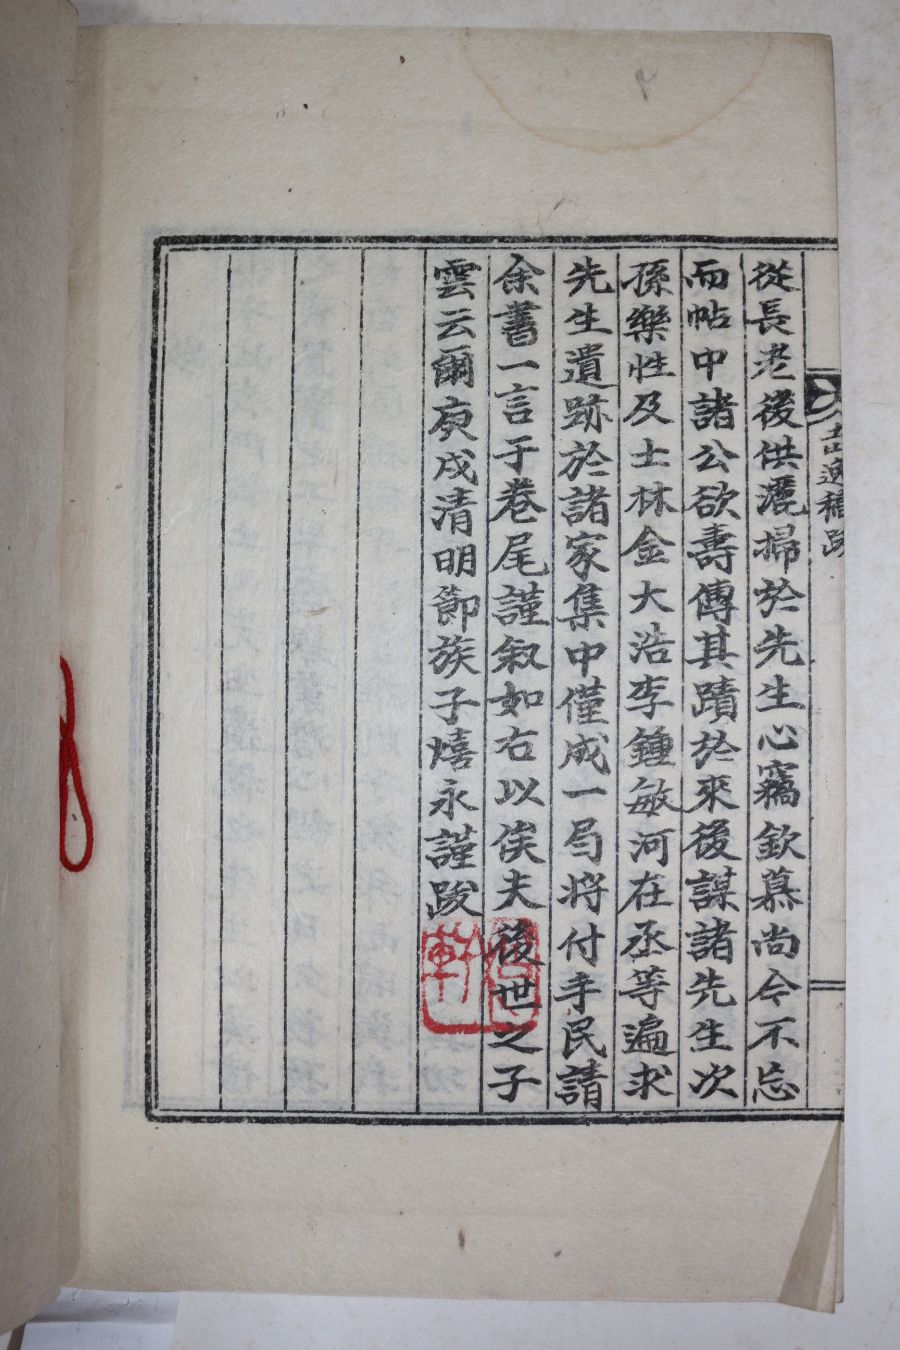 從長老後供灑掃於先生心竊欽慕尚今不忘
而帖中諸公欲壽傳其蹟於來後謀諸先生次
孫樂性及士林金大浩李鍾敏河在丞等遍求
先生遺跡於諸家集中僅成一局將付手民請
余書一言于卷尾謹叙如右以俟夫後世之子
雲云爾庚戌清明節族子熺永謹跋
逸稿跋
軒